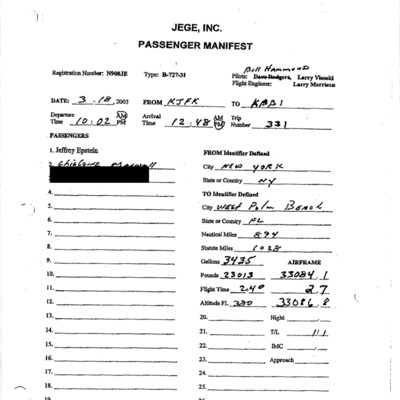 JEGE, INC.
PASSENGER MANIFEST
Bill Hammond
Registration Number: N908JE Type: B-727-31 Pilots: Dave Rodgers, Larry Visoski
Flight Engineer: Larry Morrison
DATE: 3.18,2005 FROM KJFK TO KBBI
Departure Time 10:02 AM PM Arrival Time 12:48 AM PM Trip Number 331
PASSENGERS
1. Jeffrey Epstein FROM Identifier Defined
2. Ghislane Maxwell City NEW YORK
State or Country NY
4. TO Identifier Defined
5. City WEST PALM BEACH
6. State or Country FL
7. Nautical Miles 894
8. Statute Miles 1028
9. Gallons 3435 AIRFRAME
10. Pounds 23013 33084.1
11. Flight Time 2:40 2.7
12. Altitude FL 330 33086.8
13. 20. Night
14. 21. T/L 1/1
15. 22. IMC
16. 23. Approach
17. 24.
18. 25.